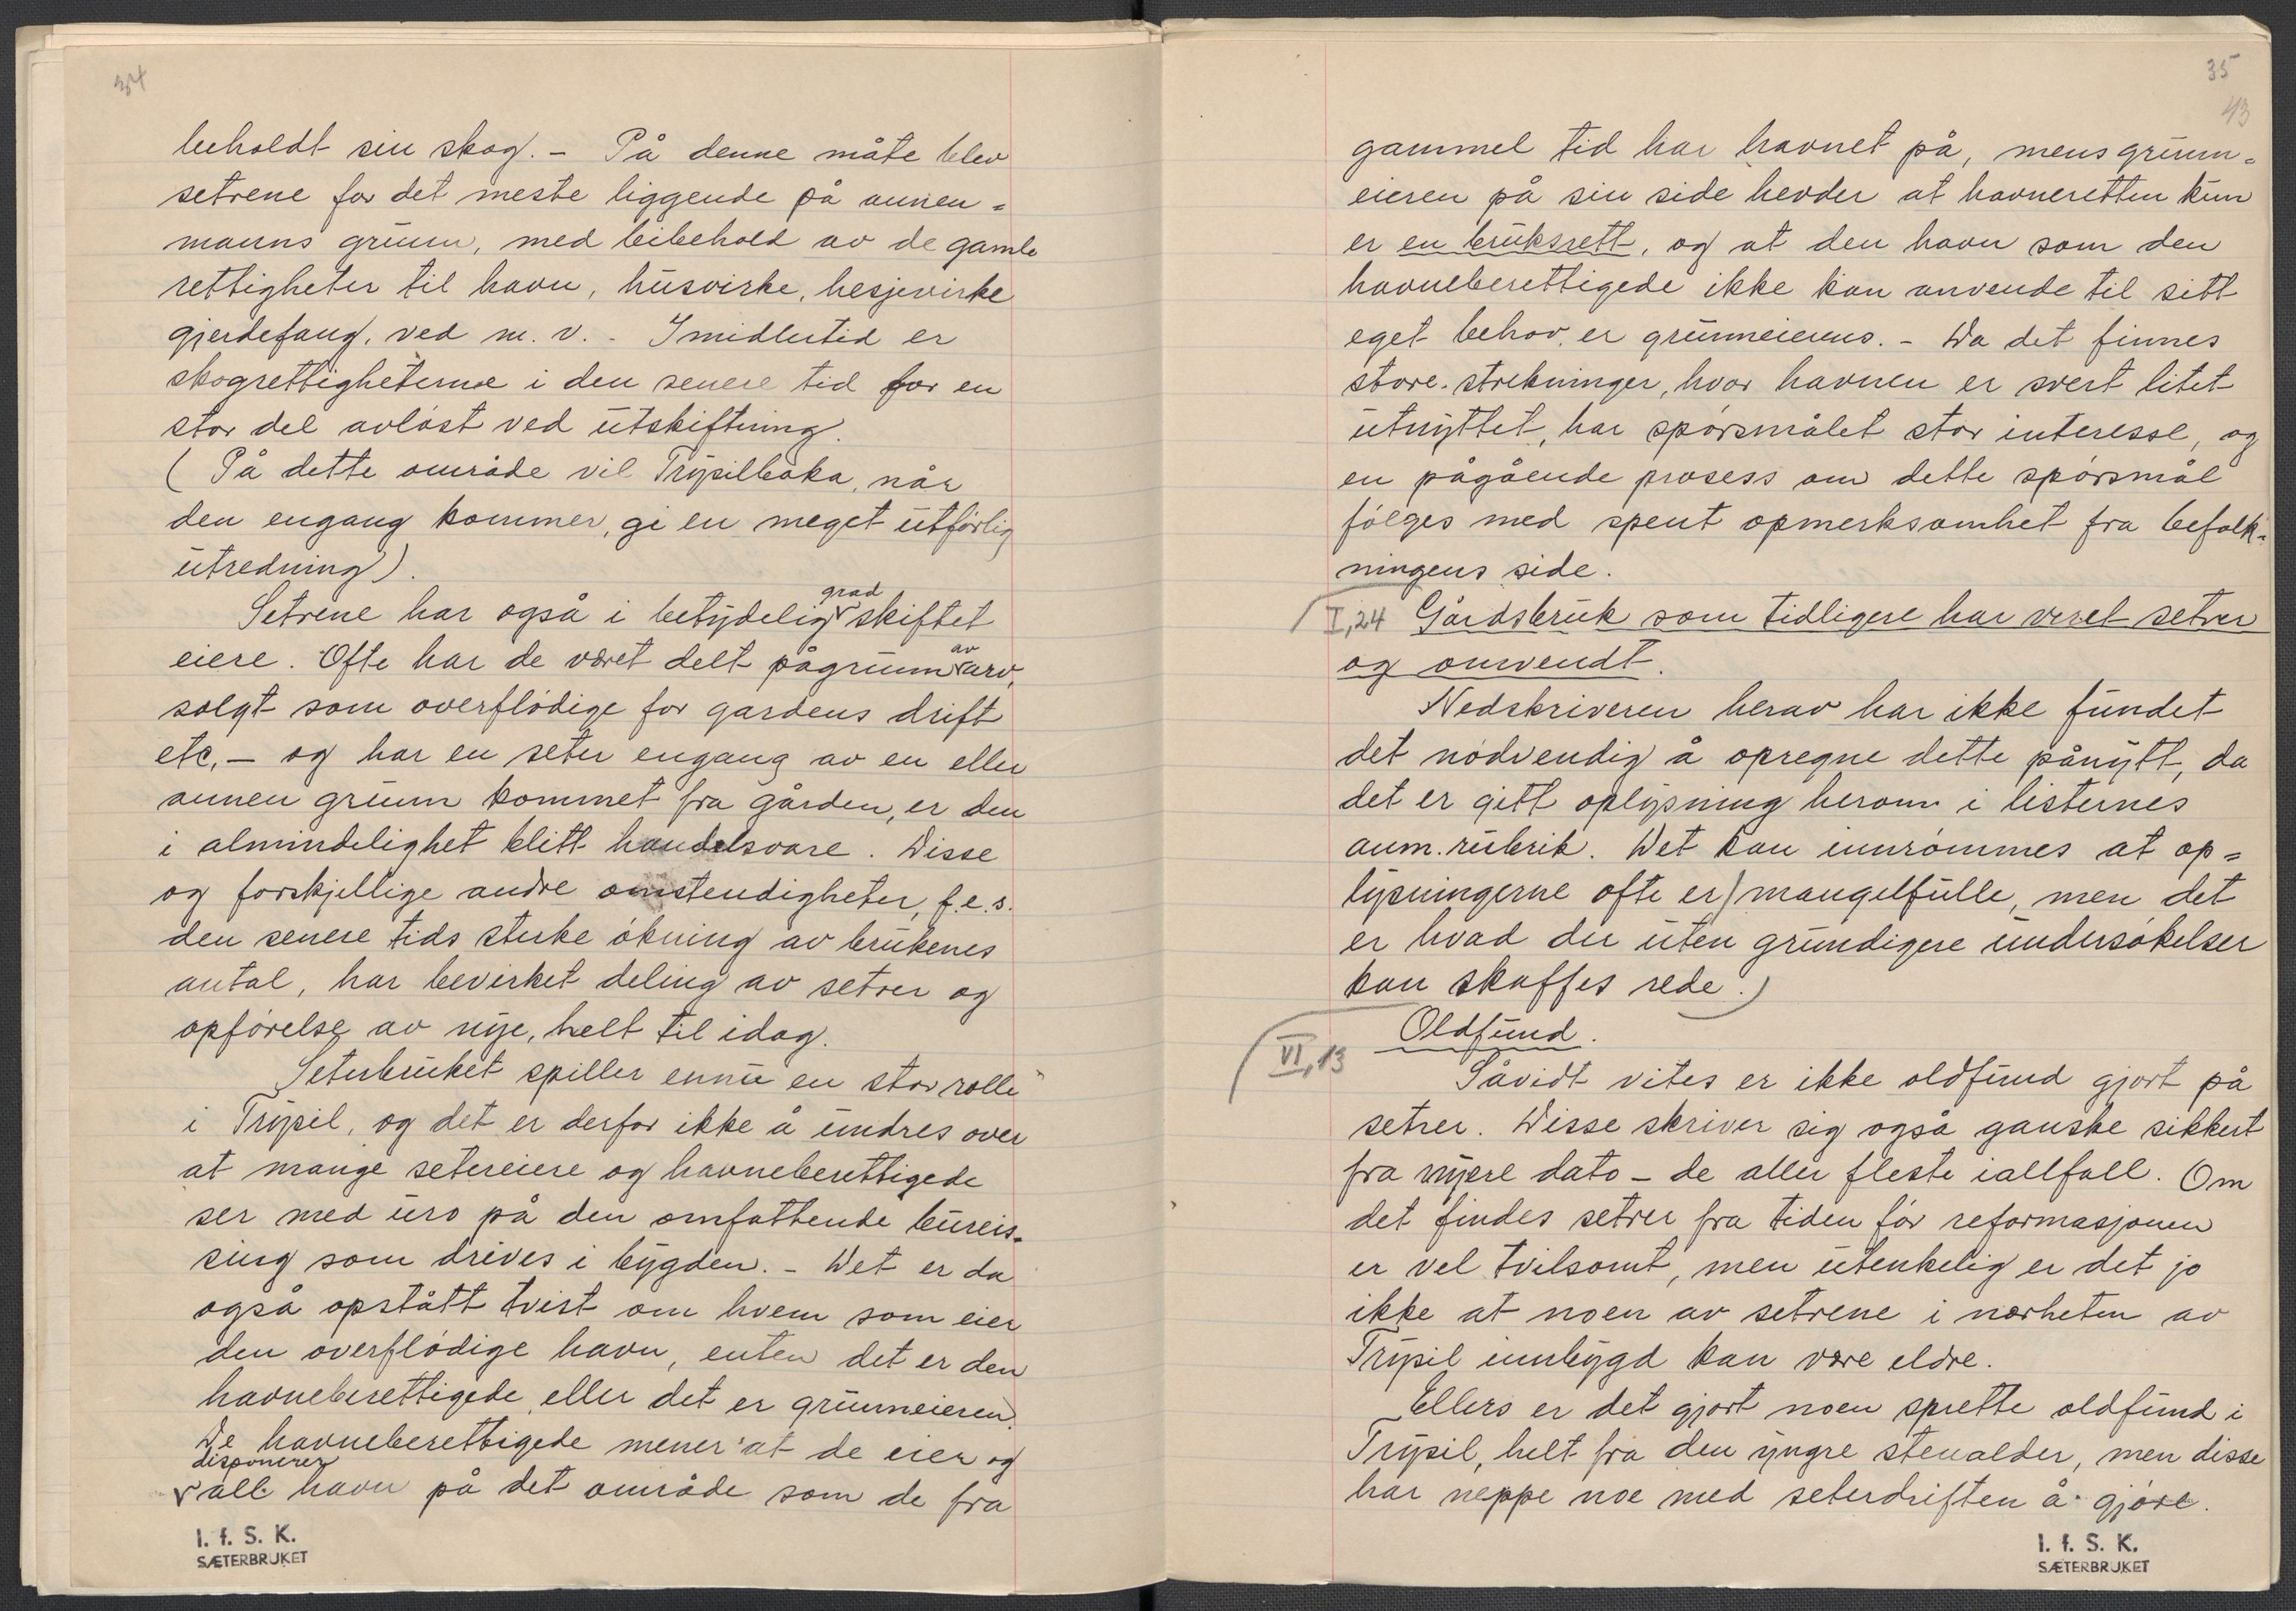 34
beholdt sin skog. – På denne måte blev
setrene for det meste liggende på annen=
manns grunn, med beibehold av de gamle
rettigheter til havn, husvirke, hesjevirke
gjerdefang, ved m. v. – Imidlertid er
skogrettigheterne i den senere tid for en
stor del avløst ved utskiftning.
(På dette område vil Trysilboka, når
den engang kommer, gi en meget utførlig
utredning).
Setrene har også i betydelig grad skiftet
eiere. Ofte har de været delt pågrunn av arv,
solgt som overflødige for gardens drift
etc. – og har en seter engang av en eller
annen grunn kommet fra gården, er den
i almindelighet blitt handelsvare. Disse
og forskjellige andre omstendigheter, f.e.s.
den senere tids sterke økning av brukenes
antal, har bevirket deling av setrer og
opførelse av nye, helt til idag.
Seterbruket spiller ennu en stor rolle
i Trysil, og det er derfor ikke å undres over
at mange setereiere og havneberettigede
ser med uro på den omfattende bureis=
sing som drives i bygden. – Det er da
også opstått tvist om hvem som eier
den overflødige havn, enten det er den
havneberettigede eller det er grunneieren.
De havneberettigede mener at de eier og
disponerer
all havn på det område som de fra
I. f. S. K.
SÆTERBRUKET
35
43
gammel tid har havnet på, mens grunn=
eieren på sin side hevder at havneretten kun
er en bruksrett, og at den havn som den
havneberettigede ikke kan anvende til sitt
eget behov, er grunneierens. – Da det finnes
store strekninger, hvor havnen er svert litet
utnyttet, har spørsmålet stor interesse, og
en pågående prosess om dette spørsmål
følges med spent opmerksomhet fra befolk=
ningens side.
I,24 Gårdsbruk som tidligere har veret setrer
og omvendt.
Nedskriveren herav har ikke fundet
det nødvendig å opregne dette pånytt, da
det er gitt oplysning herom i listernes
anm. rubrik. Det kan innrømmes at op=
lysningerne ofte er mangelfulle, men det
er hvad der uten grundigere undersøkelser
kan skaffes rede.)
Oldfund.
VI,13
Såvidt vites er ikke oldfund gjort på
setrer. Disse skriver sig også ganske sikkert
fra nyere dato – de aller fleste iallfall. Om
det findes setrer fra tiden før reformasjonen
er vel tvilsomt, men utenkelig er det jo
ikke at noen av setrene i nærheten av
Trysil innbygd kan være eldre.
Ellers er det gjort noen sprette oldfund i
Trysil, helt fra den yngre stenalder, men disse
har neppe noe med seterdriften å gjøre.
I. f. S. K.
SÆTERBRUKET